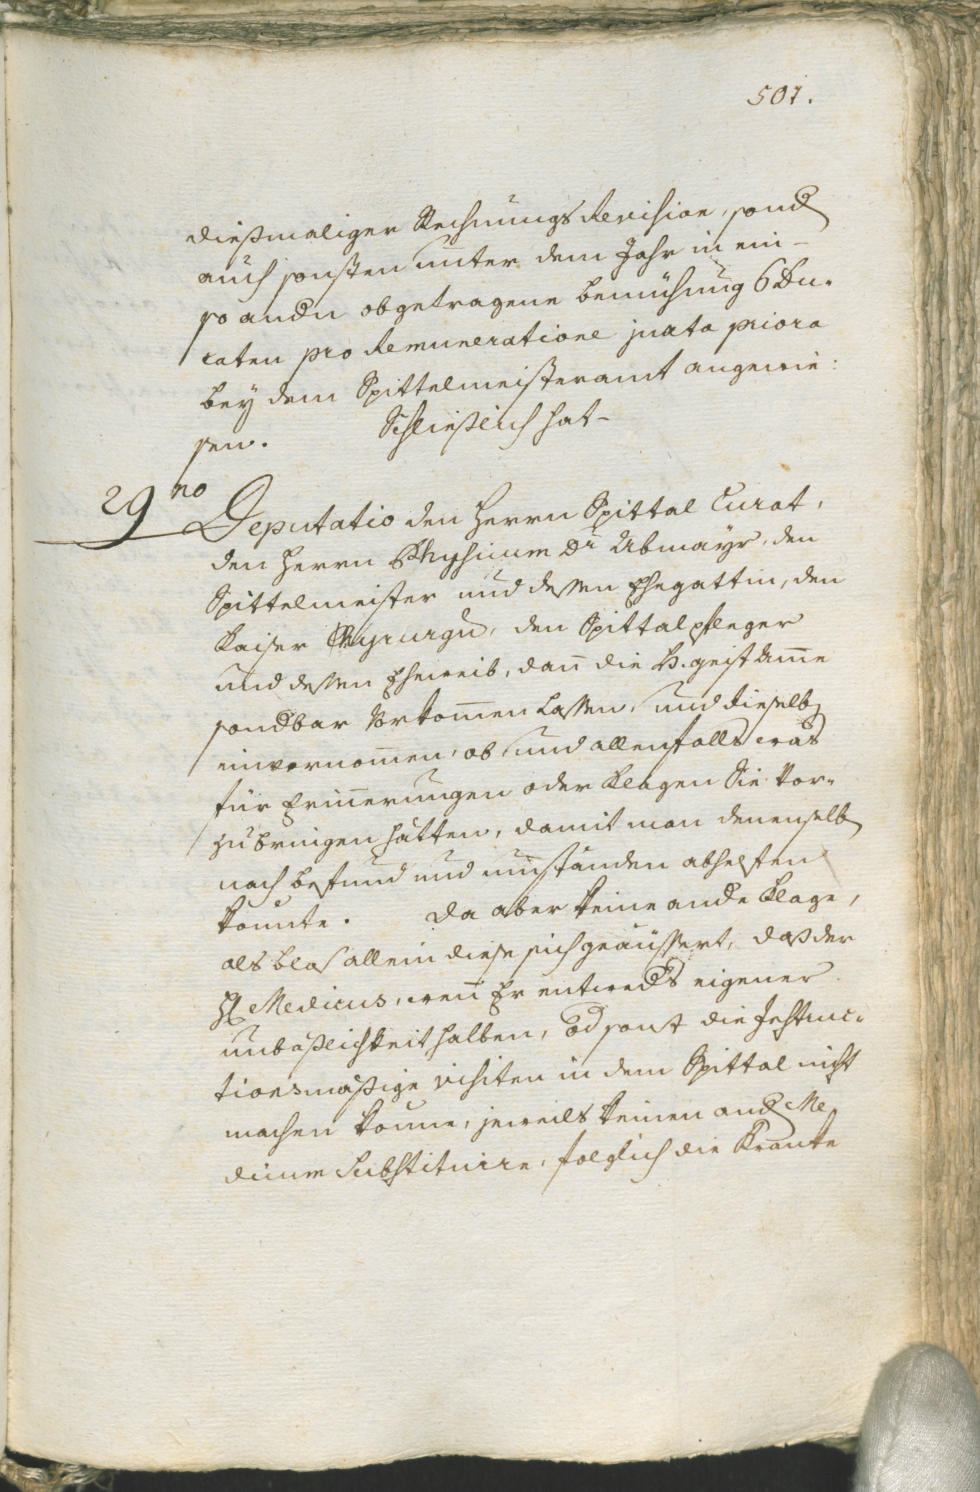 501.
dießmaliger Rechnungs Revision, sond
auch sonsten unter dem Jahr in ein-
so andn obgetragene bemühung 6 Du-
caten pro Remuneratione juxta priora
bey dem Spittelmeisteramt angewie:
sen. Schließlich hat-
29no Deputatio den Herrn Spittal Curat,
den Herrn Physicum Dr Ubmayr, den
Spittelmeister und dessen Ehegattin, den
Kaiser Chyrurgn, den Spittalpfleger
und dessen Eheweib, dan̄ die H. geist
sondbar Vorkom̄en lassen, und dieselb
einvernom̄en, ob und allenfalls was
für Erin̄erungen oder Klagen Sie Vor-
zubringen hätten, damit man denenselb
nach befund und umständen abhelfen
konnte. Da aber keine ande Klage,
als blos allein diese sich geäussert, daß der
H Medicus, wen̄ Er entweds eigener
unbäßlichkeit halben, od sonst die Instruc-
tionsmäßige visiten in dem Spittal nicht
machen könne, jeweils keinen and Me
dicum Substituire, folglich die Kranke